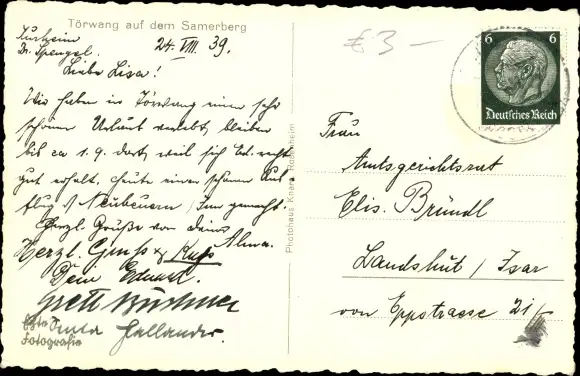 Törwang auf dem Samerberg
Kurheim
Dr. Spengel.
24. VIII 39.
Liebe Lisa!
Wir haben in Törwang einen sehr
schönen Urlaub verlebt, bleiben
bis ca 1.9. dort, weil sich Ed. recht
gut erholt. Heute einen schönen Aus-
flug n/ Neubeuern / Inn gemacht.
Herzl. Grüße von Deiner
Alma.
Herzl. Gruß & Kuß
Dein Eduard.
Echte
Fotografie
Photohaus Knarr Rosenheim
€ 3 —
6 6
Deutsches Reich
Frau
Amtsgerichtsrat
Elis. Bründl
Landshut / Isar
von Eppstrasse 21/